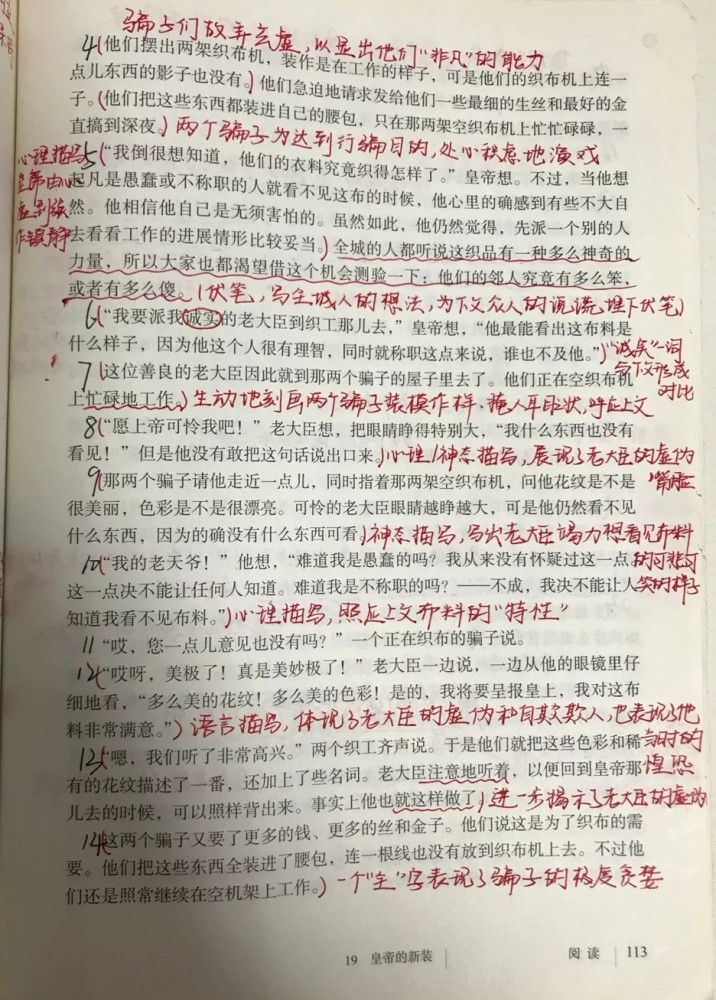 骗子们故弄玄虚，以显出他们“非凡”的能力
4(他们摆出两架织布机，装作是在工作的样子，可是他们的织布机上连一
点儿东西的影子也没有。)他们急迫地请求发给他们一些最细的生丝和最好的金
子。(他们把这些东西都装进自己的腰包，只在那两架空织布机上忙忙碌碌，一
直搞到深夜。)两个骗子为达到行骗目的，处心积虑地演戏
心理描写
皇帝由心
虚到强
作镇静
5(“我倒很想知道，他们的衣料究竟织得怎样了。”皇帝想。不过，当他想
起凡是愚蠢或不称职的人就看不见这布的时候，他心里的确感到有些不大自
然。他相信他自己是无须害怕的。虽然如此，他仍然觉得，先派一个别的人
去看看工作的进展情形比较妥当。)全城的人都听说这织品有一种多么神奇的
力量，所以大家也都渴望借这个机会测验一下：他们的邻人究竟有多么笨，
或者有多么傻。(伏笔，写全城人的想法，为下文众人的说谎埋下伏笔)
6(“我要派我诚实的老大臣到织工那儿去，”皇帝想，“他最能看出这布料是
什么样子，因为他这个人很有理智，同时就称职这点来说，谁也不及他。”)“诚实”一词
与下文形成
对比
7(这位善良的老大臣因此就到那两个骗子的屋子里去了。他们正在空织布机
上忙碌地工作。)生动地刻画两个骗子装模作样、掩人耳目状，呼应上文
8(“愿上帝可怜我吧！”老大臣想，把眼睛睁得特别大，“我什么东西也没有
看见！”但是他没有敢把这句话说出口来。)心理/神态描写，展现了老大臣的虚伪
嘴脸
9(那两个骗子请他走近一点儿，同时指着那两架空织布机，问他花纹是不是
很美丽，色彩是不是很漂亮。可怜的老大臣眼睛越睁越大，可是他仍然看不见
什么东西，因为的确没有什么东西可看。)神态描写，写出老大臣竭力想看见布料
的可悲可
笑的样子
10(“我的老天爷！”他想，“难道我是愚蠢的吗？我从来没有怀疑过这一点。
这一点决不能让任何人知道。难道我是不称职的吗？——不成，我决不能让人
知道我看不见布料。”)心理描写，照应上文布料的“特性”
11“哎，您一点儿意见也没有吗？”一个正在织布的骗子说。
12(“哎呀，美极了！真是美妙极了！”老大臣一边说，一边从他的眼镜里仔
细地看，“多么美的花纹！多么美的色彩！是的，我将要呈报皇上，我对这布
料非常满意。”)语言描写，体现了老大臣的虚伪和自欺欺人，也表现了他
当时的
惶恐
13(“嗯，我们听了非常高兴。”两个织工齐声说。于是他们就把这些色彩和稀
有的花纹描述了一番，还加上了些名词。老大臣注意地听着，以便回到皇帝那
儿去的时候，可以照样背出来。事实上他也就这样做了。)进一步揭示了老大臣的虚伪
14(这两个骗子又要了更多的钱、更多的丝和金子。他们说这是为了织布的需
要。他们把这些东西全装进了腰包，连一根线也没有放到织布机上去。不过他
们还是照常继续在空机架上工作。)一个“全”字表现了骗子的极度贪婪
19 皇帝的新装
阅读 113